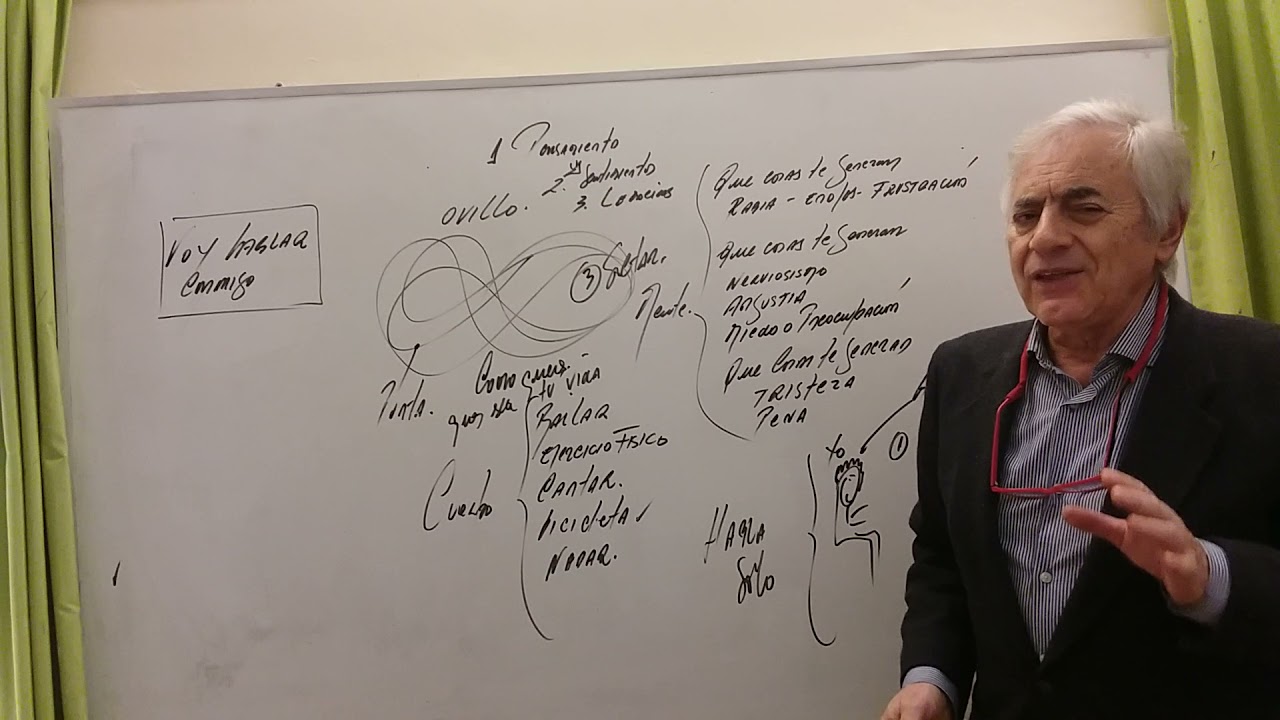 1 Pensamiento
2. Sentimiento
OVILLO.
3.
VOY HABLAR
CONMIGO
3 Soltar.
Punta.
Como
tu vida
Cuerpo
BAILAR
EJERCICIO FISICO
CANTAR.
bicicleta
NADAR.
Mente.
Que cosas te Generan
RABIA - ENOJOS - FRUSTRACIÓN
Que cosas te Generan
NERVIOSISMO
ANGUSTIA
Miedo o Preocupación
Que Cosas te GENERAN
TRISTEZA
PENA
HABLA
Solo
Yo
1